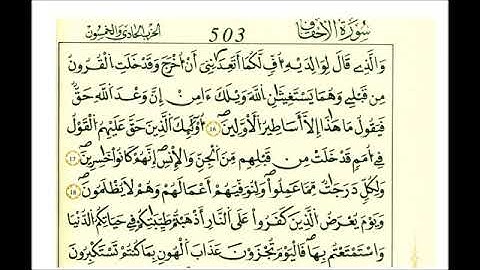 سُورَةُ الْأَحْقَافِ 503 الحزب الحادي والخمسون
وَالَّذِے قَالَ لِوَٰلِدَيْهِ أُفٍّ لَّكُمَا أَتَعِدَٰنِنِيَ أَنُ اخْرَجَ وَقَدْ خَلَتِ الْقُرُونُ
مِن قَبْلِے وَهُمَا يَسْتَغِيثَٰنِ اللَّهَ وَيْلَكَ ءَامِنِ إِنَّ وَعْدَ اللَّهِ حَقٌّ
فَيَقُولُ مَا هَٰذَا إِلَّا أَسَٰطِيرُ الْأَوَّلِينَ ١٦ أُوْلَٰئِكَ الَّذِينَ حَقَّ عَلَيْهِمُ الْقَوْلُ
فِے أُمَمٍ قَدْ خَلَتْ مِن قَبْلِهِم مِّنَ الْجِنِّ وَالْإِنسِ إِنَّهُمْ كَانُوا خَٰسِرِينَ ١٧
وَلِكُلٍّ دَرَجَٰتٌ مِّمَّا عَمِلُوا وَلِنُوَفِّيَهُمُ أَعْمَٰلَهُمْ وَهُمْ لَا يُظْلَمُونَ ١٨
وَيَوْمَ يُعْرَضُ الَّذِينَ كَفَرُوا عَلَى النَّارِ أَذْهَبْتُمْ طَيِّبَٰتِكُمْ فِے حَيَاتِكُمُ الدُّنْيَا
وَاسْتَمْتَعْتُم بِهَا فَالْيَوْمَ تُجْزَوْنَ عَذَابَ الْهُونِ بِمَا كُنتُمْ تَسْتَكْبِرُونَ